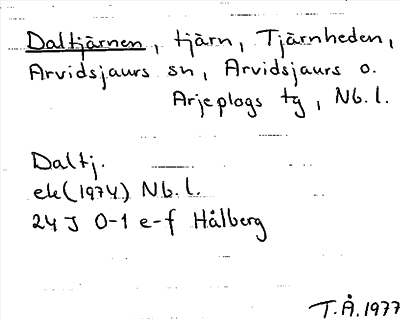 Daltjärnen, tjärn, Tjärnheden,
Arvidsjaurs sn, Arvidsjaurs o.
Arjeplogs tg, Nb. l.
Daltj.
ek (1974) Nb. l.
24 J 0-1 e-f Hålberg
T.Å. 1977